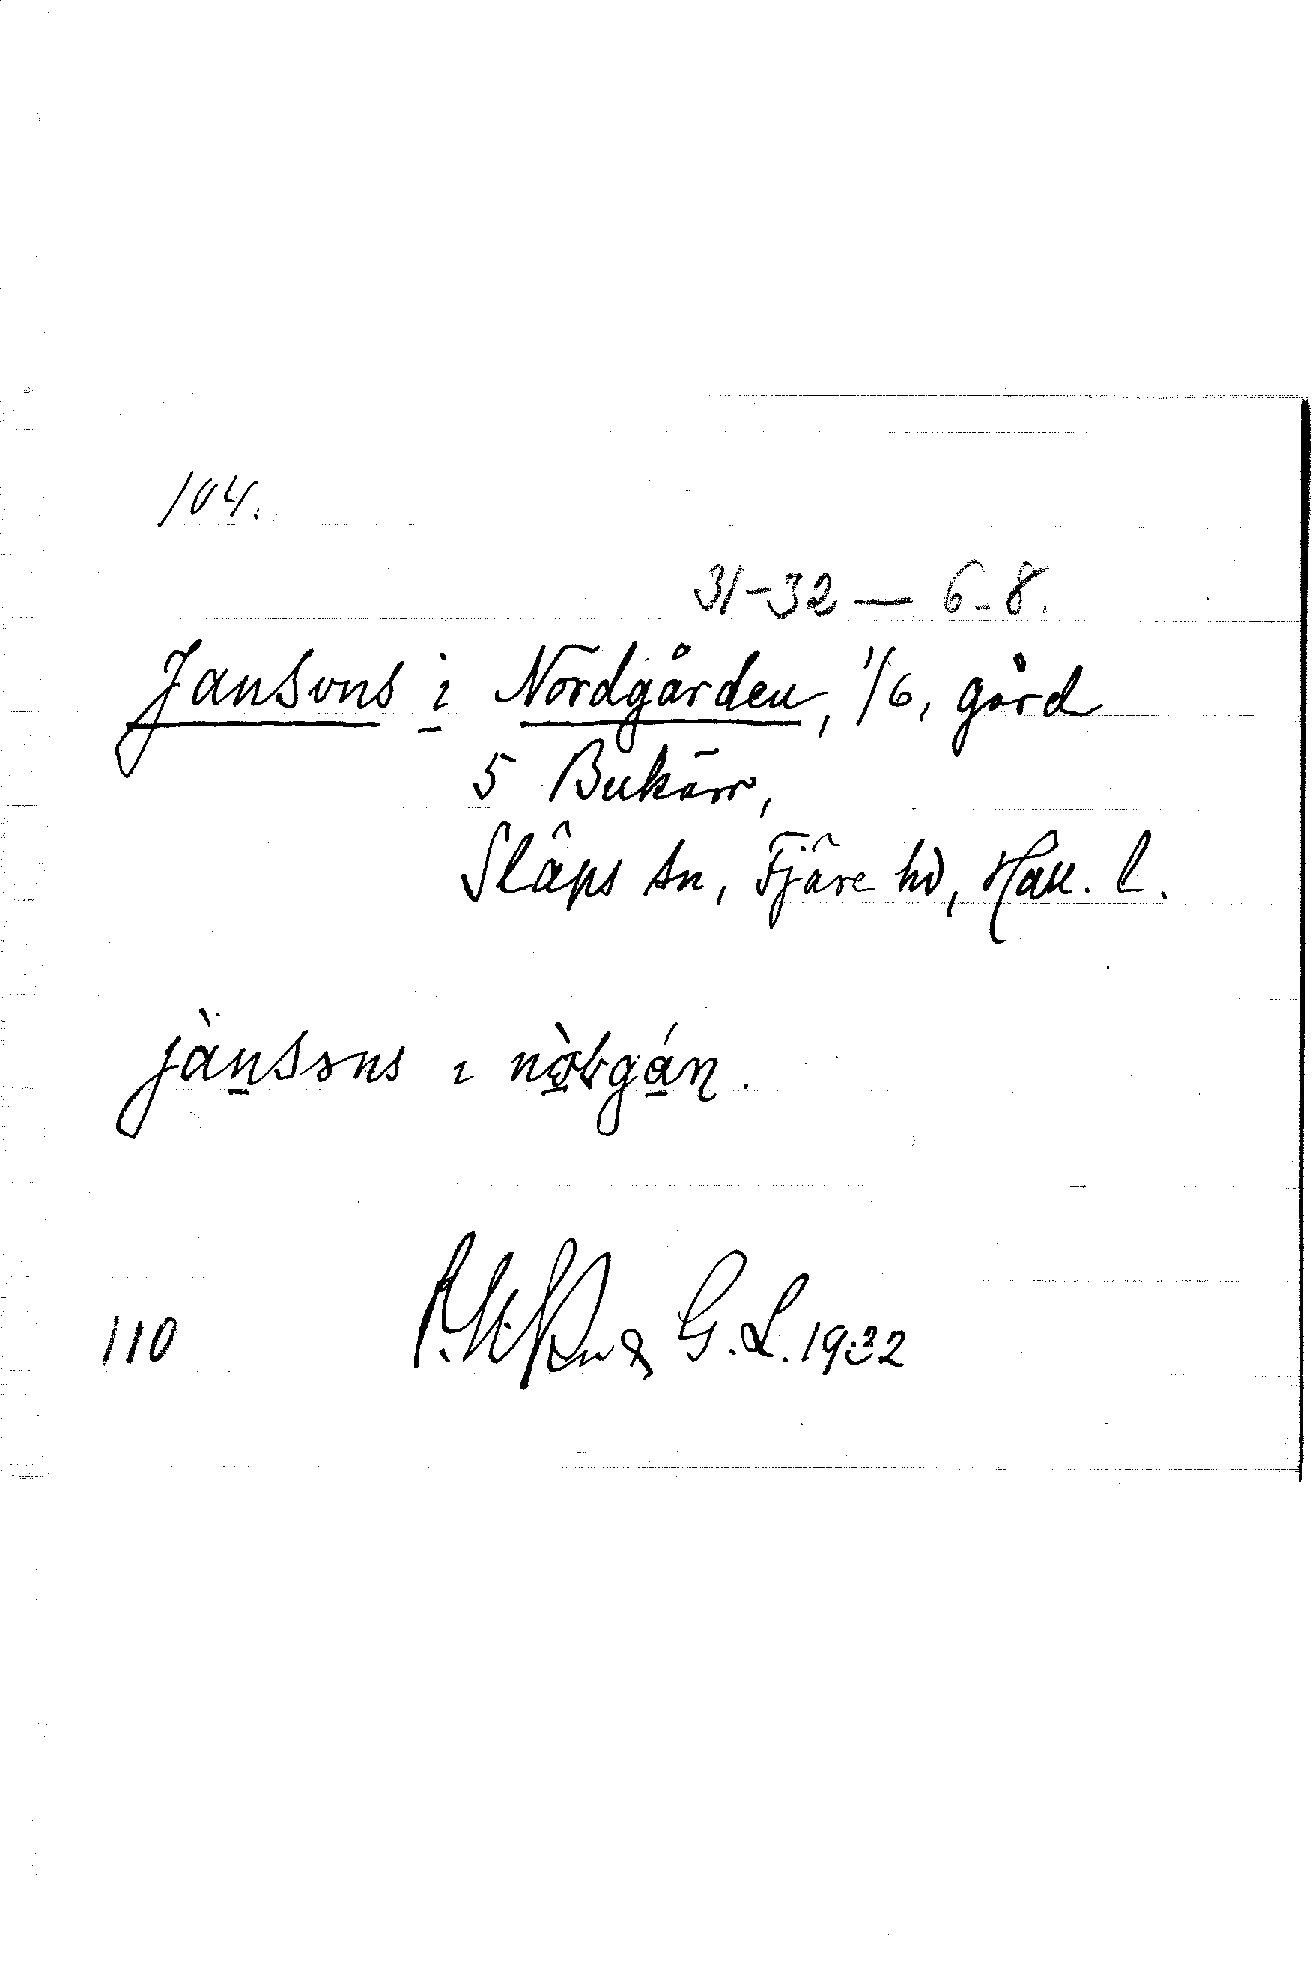 104.
31-32 — 6-8.
Jansons i Nordgården, 1/6, gård
5 Bukärr,
Släps sn, Fjäre hd, Hall. l.
jànsɔns ı
110 G. L. 1932